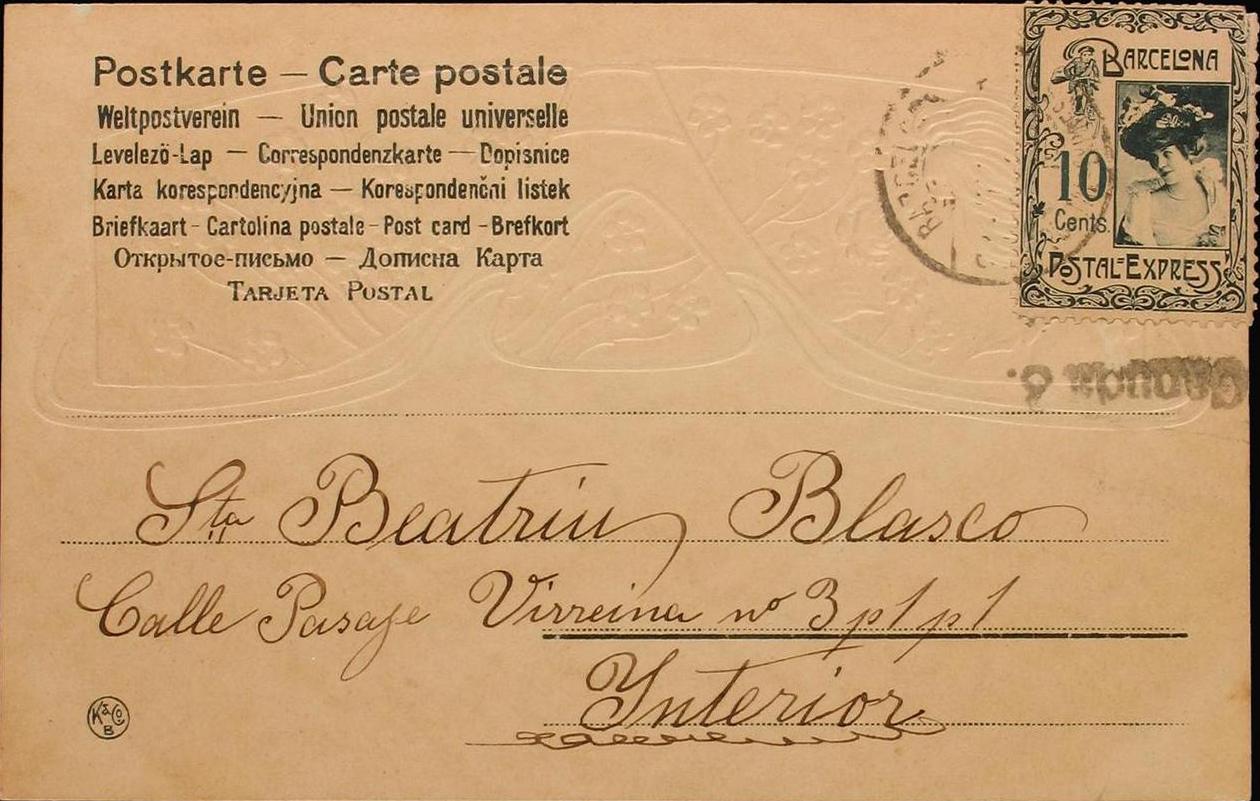 Postkarte — Carte postale
Weltpostverein — Union postale universelle
Levelezö-Lap — Correspondenzkarte — Dopisnice
Karta korespondencyjna — Korespondenčni listek
Briefkaart - Cartolina postale - Post card - Brefkort
Открытое-письмо — Дописна Карта
TARJETA POSTAL
BARCELONA
10
Cents.
POSTAL-EXPRESS
Sta Beatriu Blasco
Calle Pasaje Virreina nº 3 p1 p1
Ynterior
K & Co
B